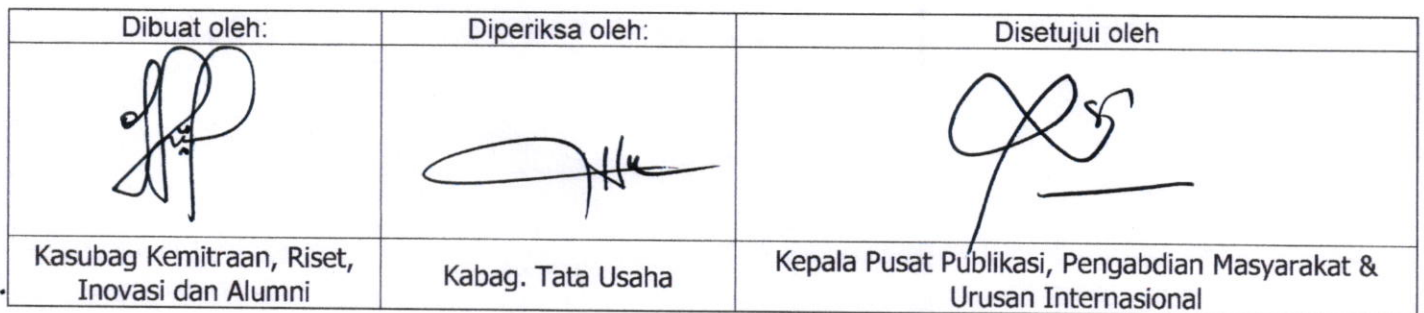 Dibuat oleh:
Diperiksa oleh:
Disetujui oleh
Kasubag Kemitraan, Riset,
Inovasi dan Alumni
Kabag. Tata Usaha
Kepala Pusat Publikasi, Pengabdian Masyarakat &
Urusan Internasional